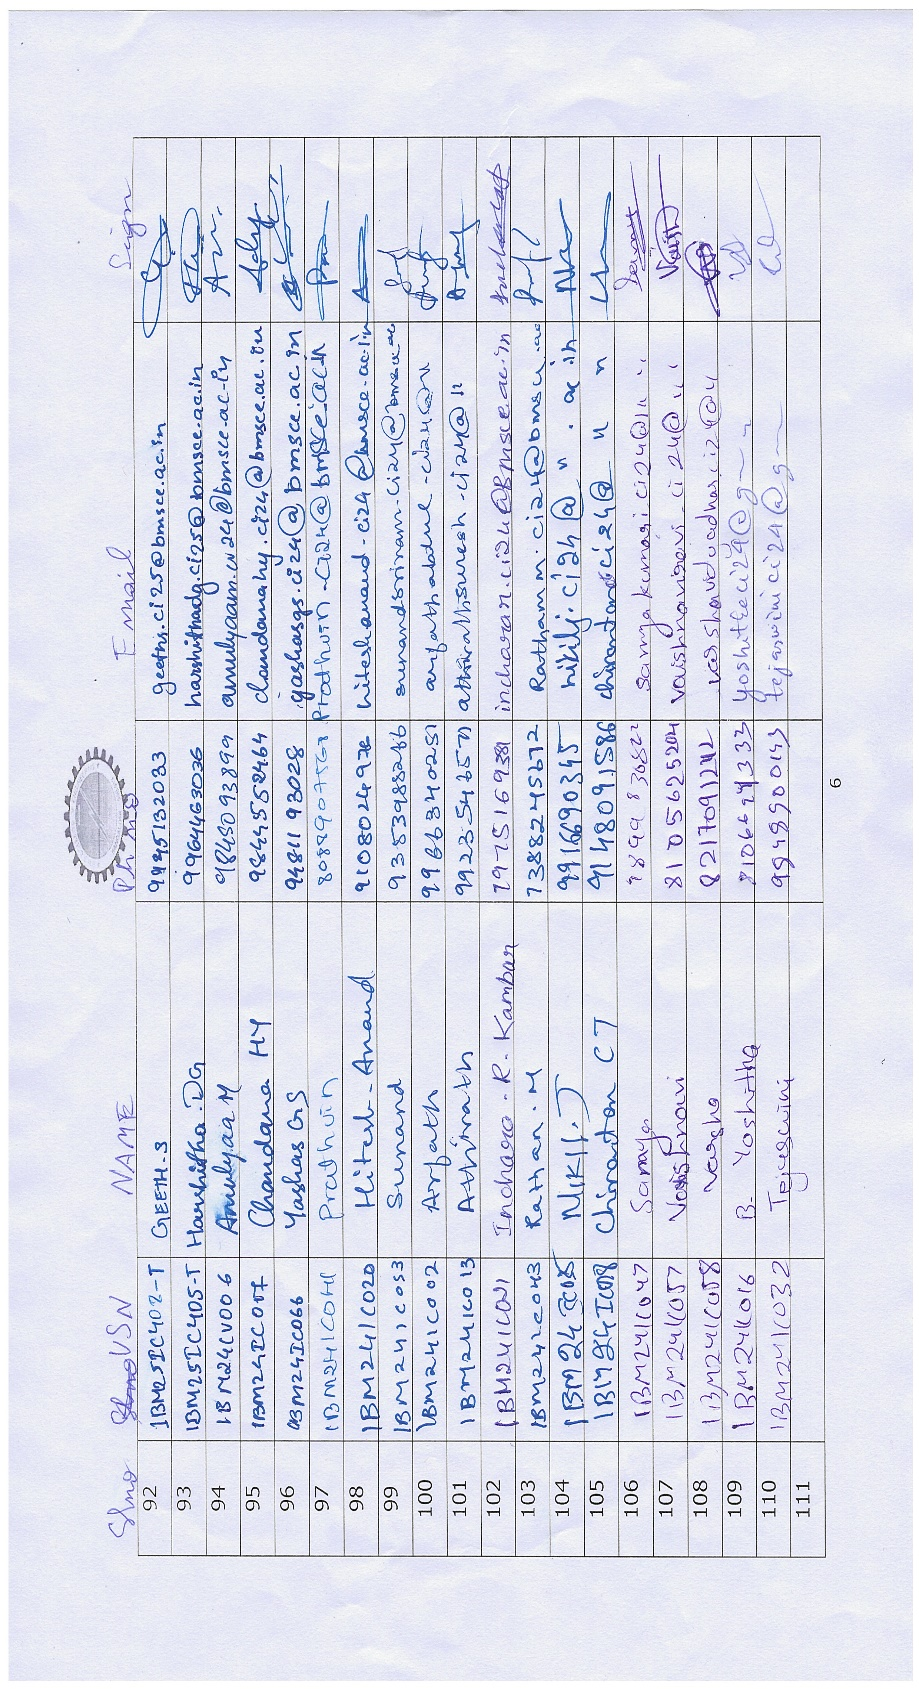 Slno USN NAME Ph no Email Sign
92 1BM25IC402-T GEETH.S 9945132033 geeths.ci25@bmsce.ac.in
93 1BM25IC405-T Harshitha.DG 9964463036 harshithadg.ci25@bmsce.ac.in
94 1BM24CV006 Amulyaa M 9845093899 amulyaam.cv24@bmsce.ac.in
95 1BM24IC007 Chandana HY 9844558464 chandanahy.ci24@bmsce.ac.in
96 1BM24IC066 Yashas GS 9481193028 yashasgs.ci24@bmsce.ac.in
97 1BM24IC041 Prathvin 8088907568 Prathvin-ci24@bmsce.ac.in
98 1BM24IC020 Hitesh-Anand 9108024976 hiteshanand-ci24@bmsce.ac.in
99 1BM24IC053 Sunand 9353988286 sunandsriram.ci24@bmsce.ac
100 1BM24IC002 Arfath 9966340251 arfathabdul-ci24@
101 1BM24IC013 Athinath 9923546571 athinathsuresh-ci24@ 11
102 1BM24IC021 Inchara.R.Kambar 7975169381 inchararn.ci24@bmsce.ac.in
103 1BM24IC043 Rathan.M 7388245672 Rathanm.ci24@bmsce.ac
104 1BM24IC035 NIKIL.J 9916690345 nikilj.ci24@ n . ac in
105 1BM24IC018 Chirantan CJ 9148091586 chirantancj.ci24@ n n
106 1BM24IC047 Samya 9899836822 samyakumari.ci24@ " "
107 1BM24IC057 Vaishnavi 8105625204 vaishnavi.ci24@ " "
108 1BM24IC058 Varsha 8217091242
109 1BM24IC016 B. Yoshitha 8106647333 yoshithaci24@g
110 1BM24IC032 Tejaswini 9949900143 tejaswinici24@g
111
6